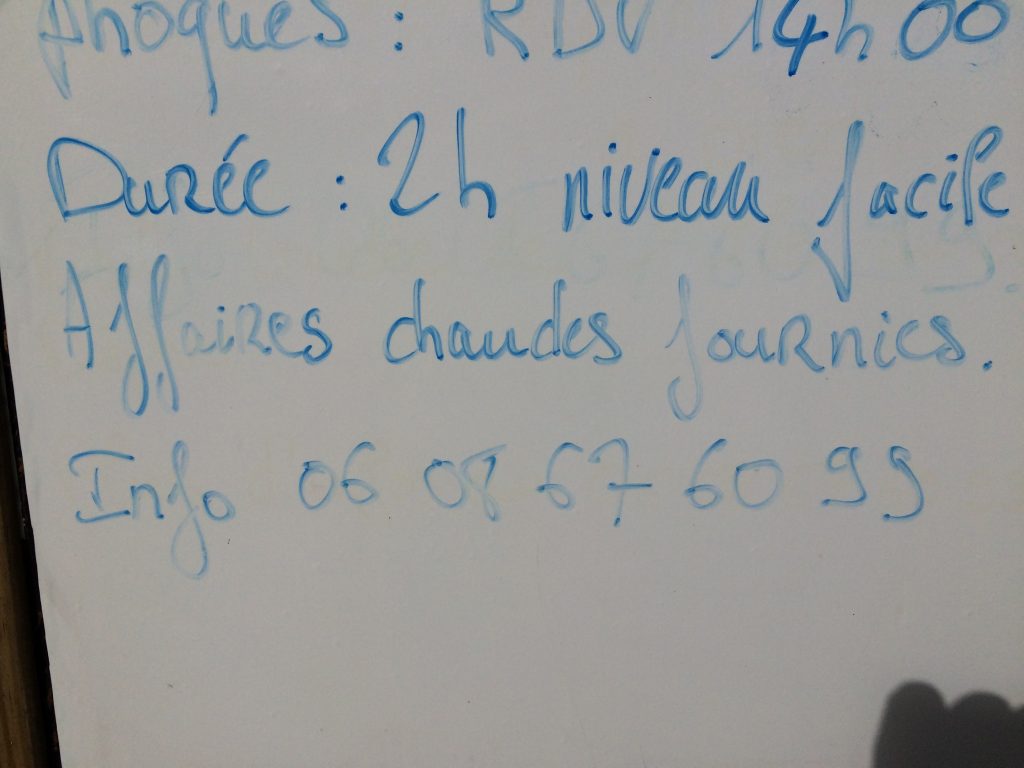 Phoques : RDV 14h00
Durée : 2h niveau facile
Affaires chaudes fournies.
Info 06 08 67 60 99